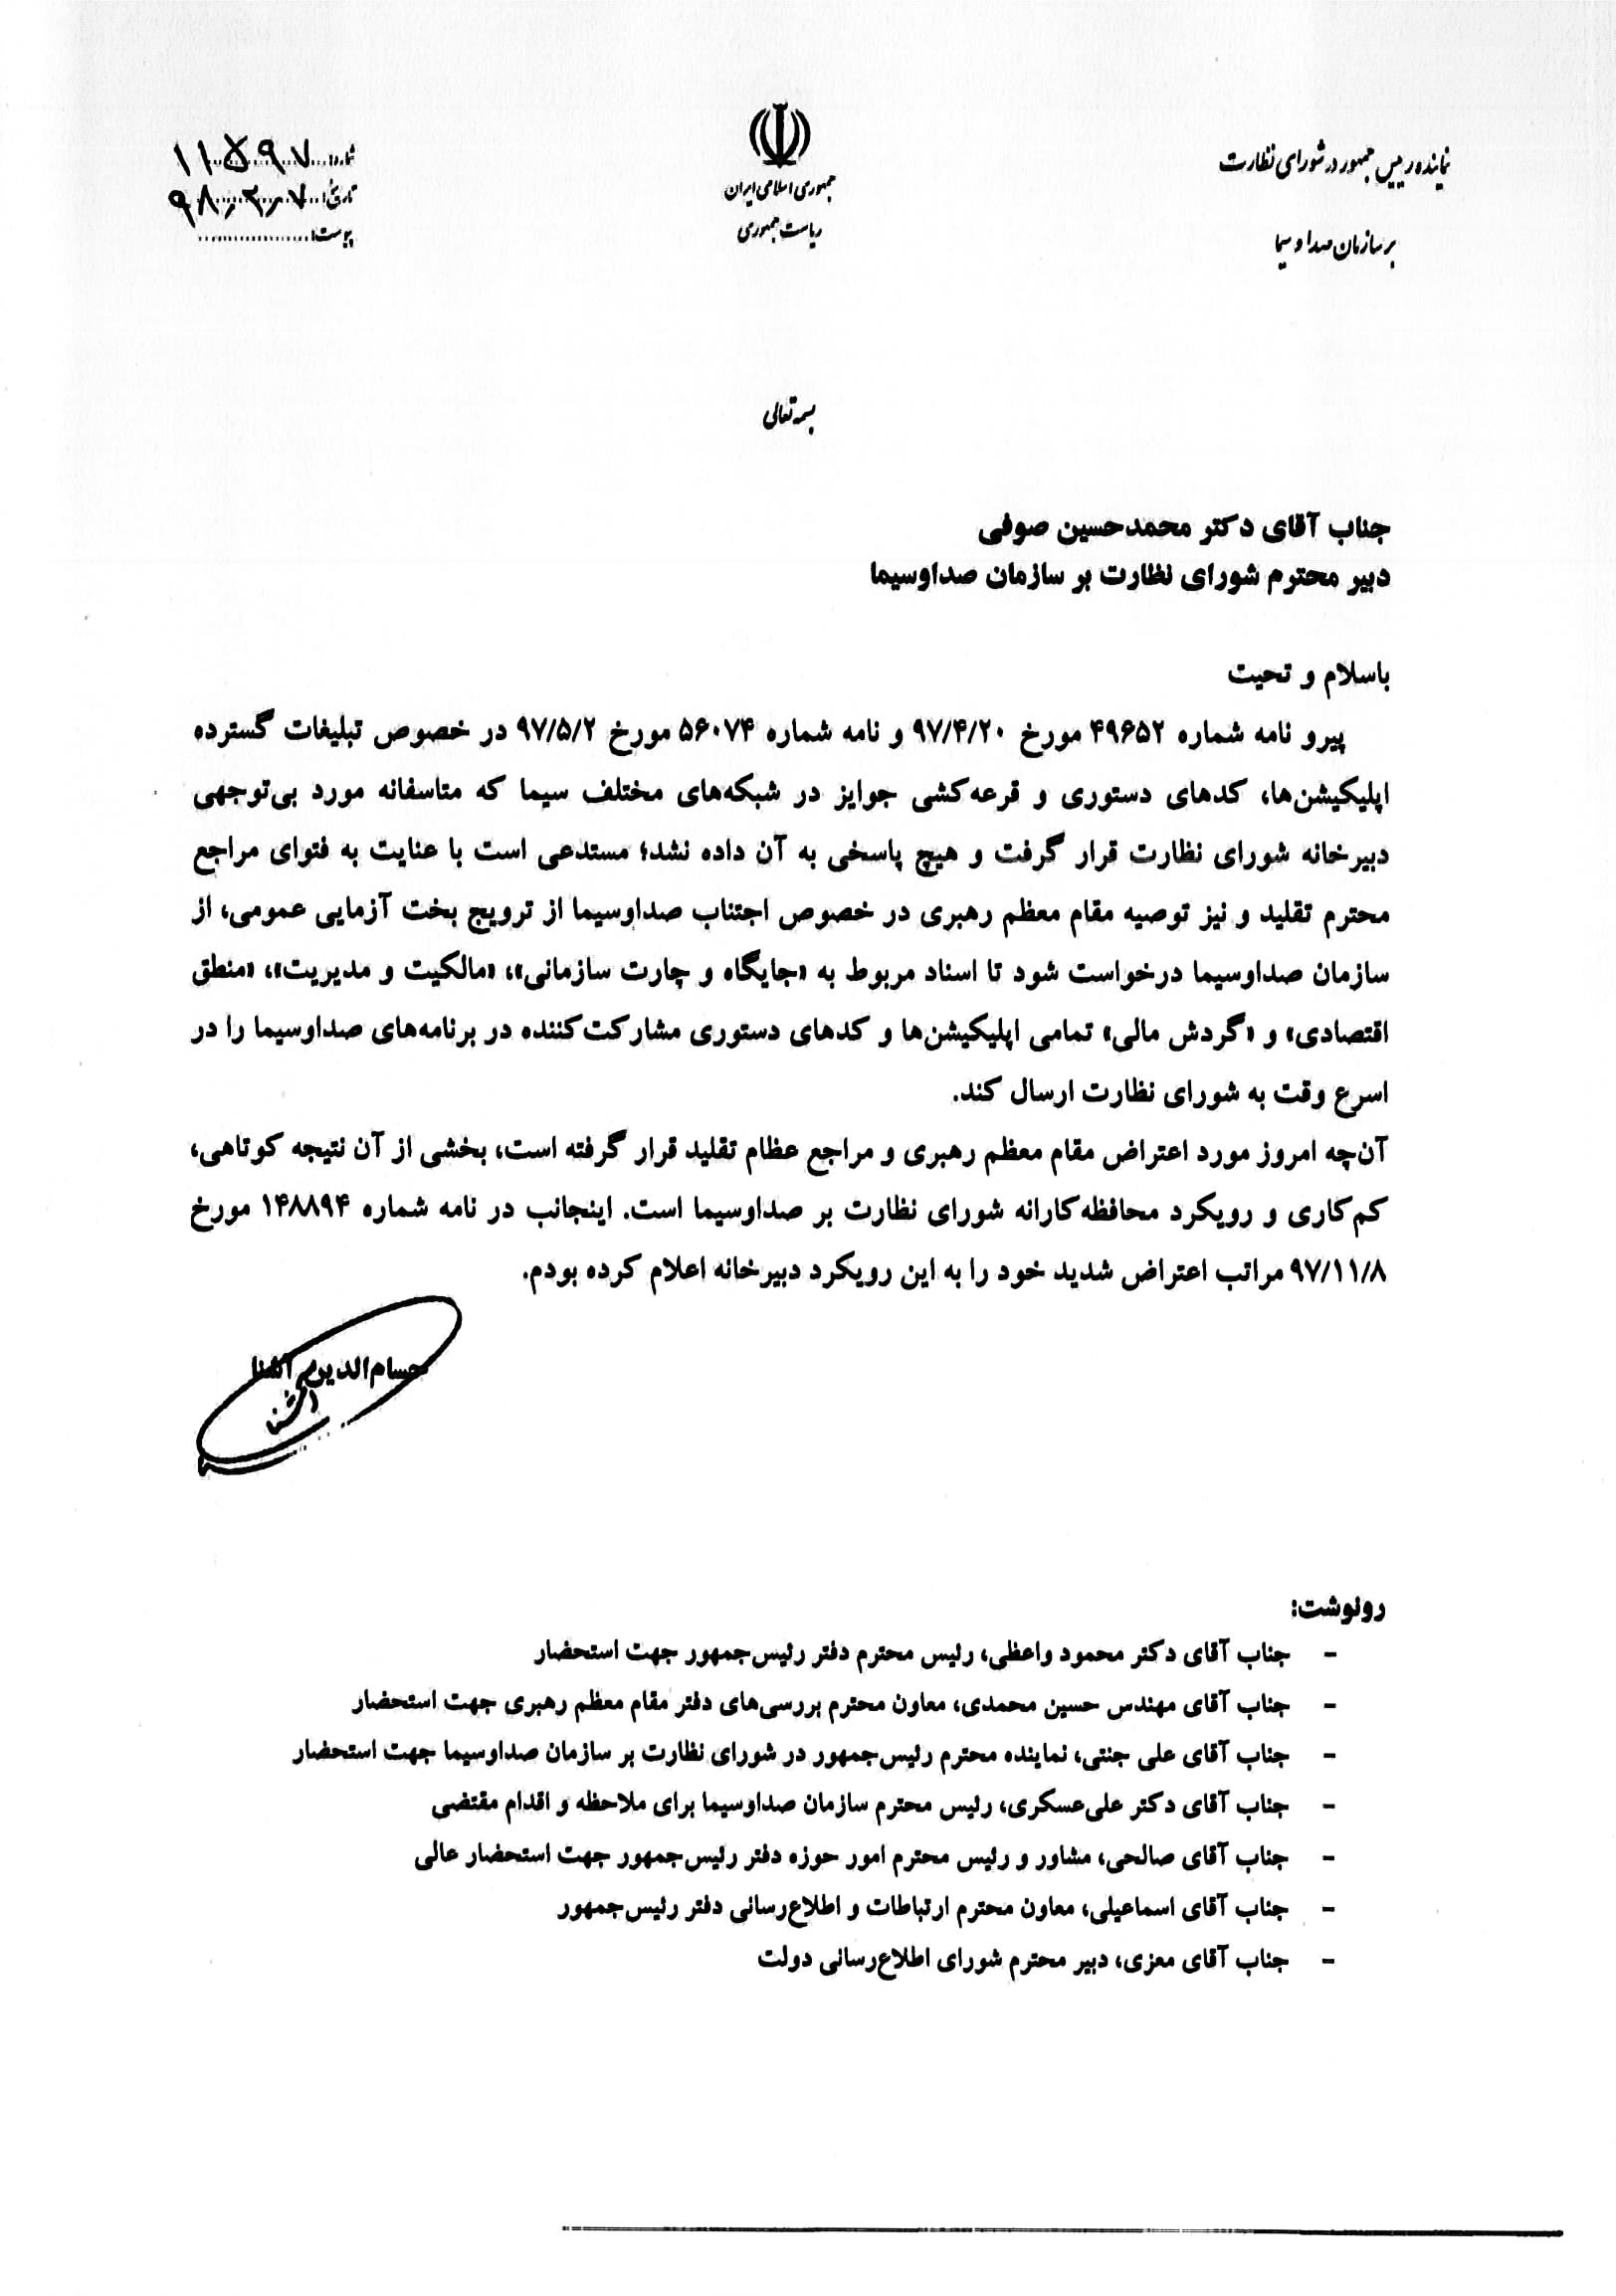 نماینده رییس جمهور در شورای نظارت
بر سازمان صدا و سیما
جمهوری اسلامی ایران
ریاست جمهوری
شماره: ۱۱۵۹۷
تاریخ: ۹۸٫۲٫۷
پیوست:
بسمه تعالی
جناب آقای دکتر محمدحسین صوفی
دبیر محترم شورای نظارت بر سازمان صداوسیما
باسلام و تحیت
پیرو نامه شماره ۴۹۶۵۲ مورخ ۹۷/۴/۲۰ و نامه شماره ۵۶۰۷۴ مورخ ۹۷/۵/۲ در خصوص تبلیغات گسترده
اپلیکیشن‌ها، کدهای دستوری و قرعه‌کشی جوایز در شبکه‌های مختلف سیما که متاسفانه مورد بی‌توجهی
دبیرخانه شورای نظارت قرار گرفت و هیچ پاسخی به آن داده نشد؛ مستدعی است با عنایت به فتوای مراجع
محترم تقلید و نیز توصیه مقام معظم رهبری در خصوص اجتناب صداوسیما از ترویج بخت آزمایی عمومی، از
سازمان صداوسیما درخواست شود تا اسناد مربوط به «جایگاه و چارت سازمانی»، «مالکیت و مدیریت»، «منطق
اقتصادی» و «گردش مالی» تمامی اپلیکیشن‌ها و کدهای دستوری مشارکت‌کننده در برنامه‌های صداوسیما را در
اسرع وقت به شورای نظارت ارسال کند.
آن‌چه امروز مورد اعتراض مقام معظم رهبری و مراجع عظام تقلید قرار گرفته است، بخشی از آن نتیجه کوتاهی،
کم‌کاری و رویکرد محافظه‌کارانه شورای نظارت بر صداوسیما است. اینجانب در نامه شماره ۱۴۸۸۹۴ مورخ
۹۷/۱۱/۸ مراتب اعتراض شدید خود را به این رویکرد دبیرخانه اعلام کرده بودم.
حسام‌الدین آشنا
آشنا
رونوشت:
- جناب آقای دکتر محمود واعظی، رئیس محترم دفتر رئیس‌جمهور جهت استحضار
- جناب آقای مهندس حسین محمدی، معاون محترم بررسی‌های دفتر مقام معظم رهبری جهت استحضار
- جناب آقای علی جنتی، نماینده محترم رئیس‌جمهور در شورای نظارت بر سازمان صداوسیما جهت استحضار
- جناب آقای دکتر علی‌عسکری، رئیس محترم سازمان صداوسیما برای ملاحظه و اقدام مقتضی
- جناب آقای صالحی، مشاور و رئیس محترم امور حوزه دفتر رئیس‌جمهور جهت استحضار عالی
- جناب آقای اسماعیلی، معاون محترم ارتباطات و اطلاع‌رسانی دفتر رئیس‌جمهور
- جناب آقای معزی، دبیر محترم شورای اطلاع‌رسانی دولت